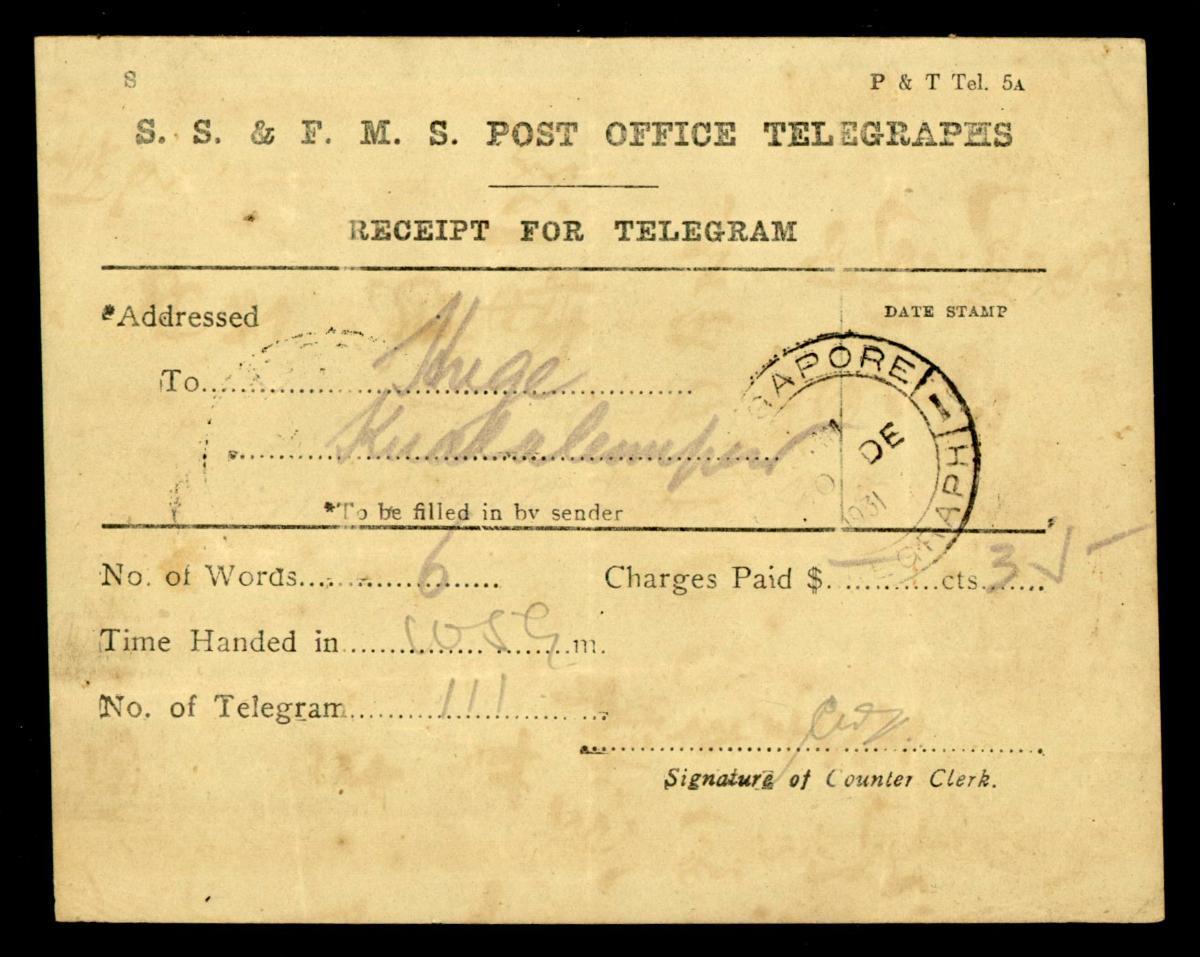 8 P & T Tel. 5A
S. S. & F. M. S. POST OFFICE TELEGRAPHS
RECEIPT FOR TELEGRAM
*Addressed
DATE STAMP
To Huge
Kualalumpur
*To be filled in by sender
GAPORE 1
DE
1931
GRAPH
No. of Words 6 Charges Paid $ — cts 35
Time Handed in 1059 m.
No. of Telegram 111
Signature of Counter Clerk.